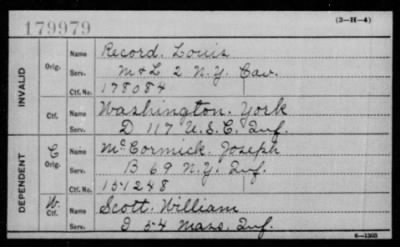 179979
(3-H-4)
INVALID
Orig. Name Record, Louis
Serv. M & L 2 N.Y. Cav.
Ctf. No. 178084
Ctf. Name Washington, York
Serv. D 117 U.S.C. Inf.
DEPENDENT
C
Orig. Name McCormick, Joseph
Serv. B 69 N.Y. Inf.
Ctf. No. 151248
W.
Ctf. Name Scott, William
Serv. I 54 Mass. Inf.